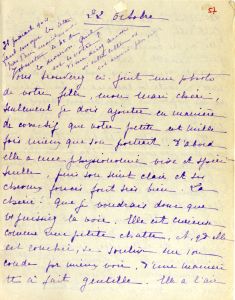 22 octobre
57
Vous trouverez ci-joint une photo
de votre fille, mon mari chéri,
seulement je dois ajouter en manière
de correctif que votre petite est mille
fois mieux que son portrait. D'abord
elle a une physionomie vive et spiri-
tuelle, puis son teint clair et ses
cheveux foncés font très bien. La
chérie! Que je voudrais donc que
vous puissiez la voir. Elle est curieuse
comme une petite chatte, et qd elle
est couchée, se soulève sur son
coude pour mieux voir, d'une manière
tt à fait gentille. Elle a l'air